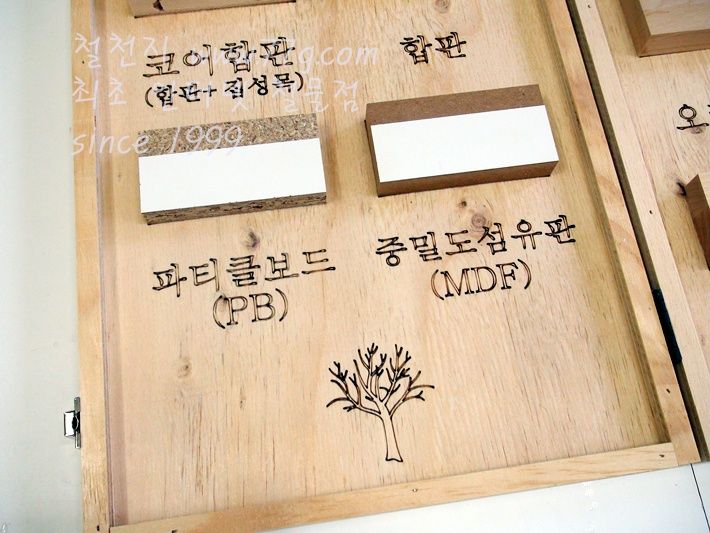 코어합판
(합판+집성목)
합판
파티클보드
(PB)
중밀도섬유판
(MDF)
오
철천지
최초
철물점
since 1999